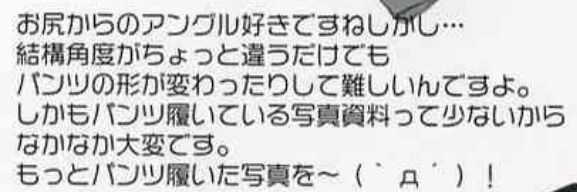 お尻からのアングル好きですねしかし…
結構角度がちょっと違うだけでも
パンツの形が変わったりして難しいんですよ。
しかもパンツ履いている写真資料って少ないから
なかなか大変です。
もっとパンツ履いた写真を～（｀д´）！